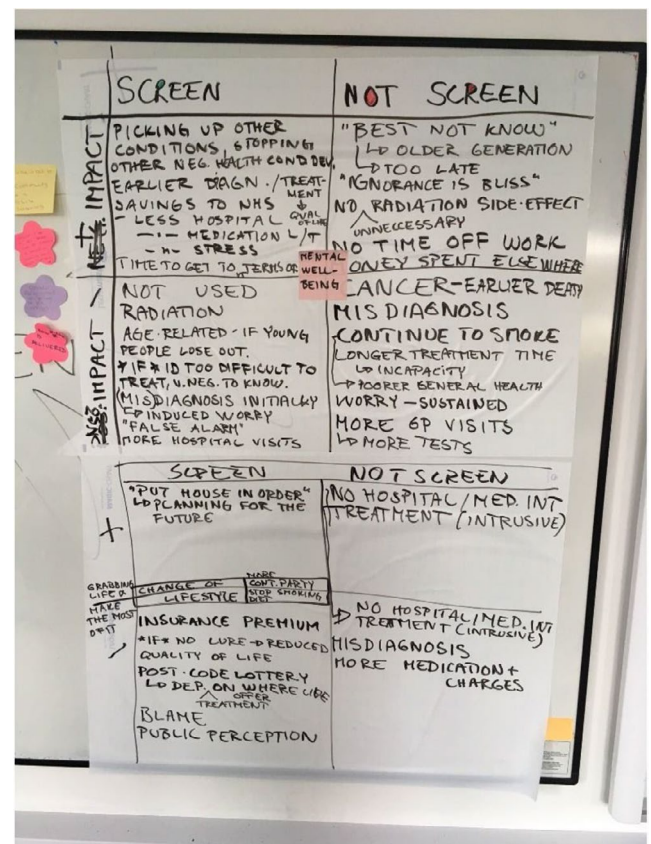 SCREEN
PICKING UP OTHER
CONDITIONS, STOPPING
OTHER NEG. HEALTH COND DEV.
EARLIER DIAGN./TREAT-
MENT
SAVINGS TO NHS
QUAL
OF LIFE
- LESS HOSPITAL
-"- MEDICATION L/T
-"- STRESS
TIME TO GET TO TERMS OF
MENTAL
WELL-
BEING
NOT SCREEN
"BEST NOT KNOW"
↳ OLDER GENERATION
↳ TOO LATE
"IGNORANCE IS BLISS"
NO RADIATION SIDE-EFFECT
UNNECESSARY
NO TIME OFF WORK
MONEY SPENT ELSEWHERE
+ IMPACT
NOT USED
RADIATION
AGE-RELATED - IF YOUNG
PEOPLE LOSE OUT.
*IF* ID TOO DIFFICULT TO
TREAT, U. NEG. TO KNOW.
(MIS)DIAGNOSIS INITIALLY
↳ INDUCED WORRY
"FALSE ALARM"
MORE HOSPITAL VISITS
CANCER-EARLIER DEATH
MISDIAGNOSIS
CONTINUE TO SMOKE
LONGER TREATMENT TIME
↳ INCAPACITY
↳ POORER GENERAL HEALTH
WORRY - SUSTAINED
MORE GP VISITS
↳ MORE TESTS
IMPACT -
SCREEN
"PUT HOUSE IN ORDER"
↳ PLANNING FOR THE
FUTURE
+
GRABBING
LIFE &
MAKE
THE MOST
OF IT
CHANGE OF
LIFESTYLE
MORE
CONT. PARTY
STOP SMOKING
DIET
INSURANCE PREMIUM
*IF* NO CURE → REDUCED
QUALITY OF LIFE
POST-CODE LOTTERY
↳ DEP. ON WHERE LIVE
OFFER
TREATMENT
BLAME
PUBLIC PERCEPTION
NOT SCREEN
NO HOSPITAL/MED. INT
TREATMENT (INTRUSIVE)
↳ NO HOSPITAL/MED. INT
TREATMENT (INTRUSIVE)
MISDIAGNOSIS
MORE MEDICATION +
CHARGES